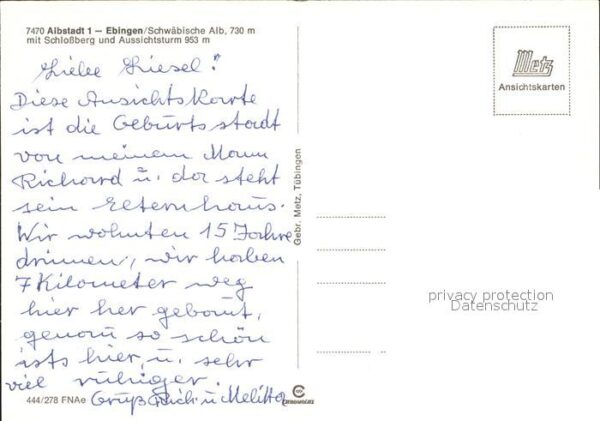 7470 Albstadt 1 — Ebingen/Schwäbische Alb, 730 m
mit Schloßberg und Aussichtsturm 953 m
Liebe Liesel!
Diese Ansichtskarte
ist die Geburtsstadt
von meinem Mann
Richard u. da steht
sein Elternhaus.
Wir wohnten 15 Jahre
drinnen, wir haben
7 Kilometer weg
hier her gebaut,
genau so schön
ists hier, u. sehr
viel ruhiger.
Gruß Rich u. Melitta
444/278 FNAe
Gebr. Metz, Tübingen
Metz
Ansichtskarten
privacy protection
Datenschutz